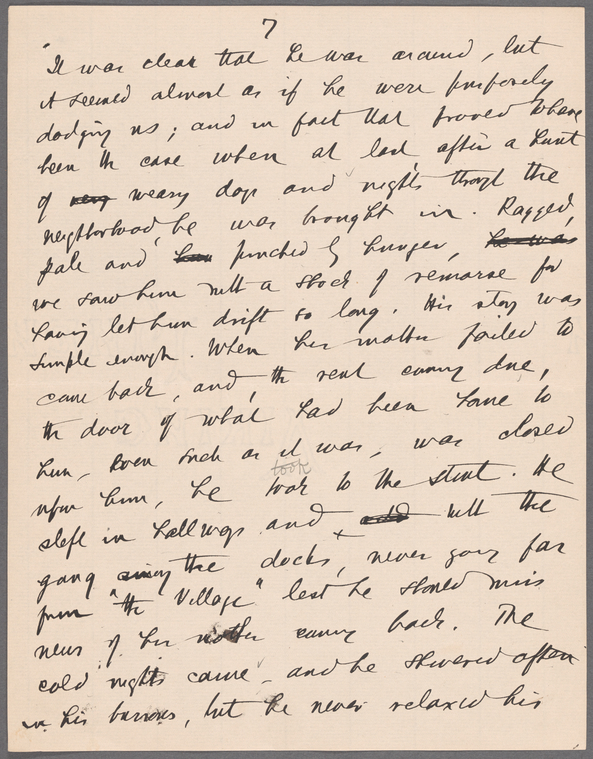 7
"It was clear that he was around, but
it seemed almost as if he were purposely
dodging us; and in fact that proved to have
been the case when at last, after a hunt
of very weary days and nights through the
neighborhood, he was brought in. Ragged,
pale and pinched by hunger, he was
we saw him with a shock of remorse for
having let him drift so long. His story was
simple enough. When his mother failed to
come back, and, the rent coming due,
the door of what had been home to
him, even such as it was, was closed
took
upon him, he took to the street. He
slept in hallways and with the
gang among the docks, never going far
from "the Village" lest he should miss
news of his mother coming back. The
cold nights came, and he shivered often
in his burrows, but he never relaxed his